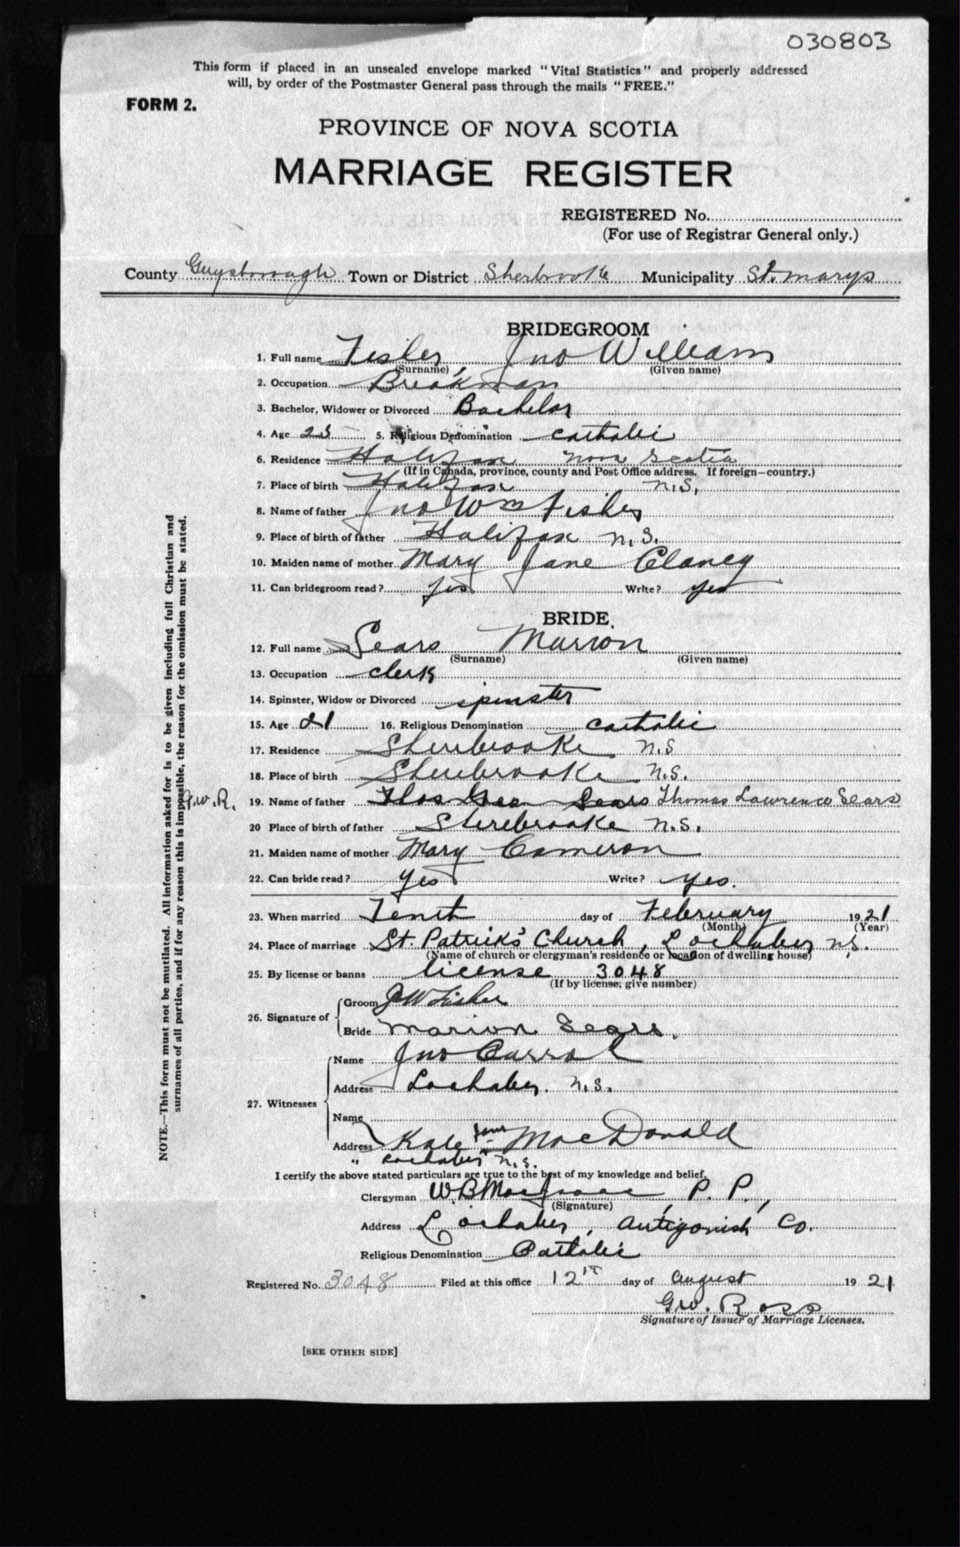 030803
This form if placed in an unsealed envelope marked "Vital Statistics" and properly addressed
will, by order of the Postmaster General pass through the mails "FREE."
FORM 2.
PROVINCE OF NOVA SCOTIA
MARRIAGE REGISTER
REGISTERED No.
(For use of Registrar General only.)
County Guysborough Town or District Sherbrooke Municipality St. Marys
BRIDEGROOM
1. Full name Fisher, Jno William
(Surname) (Given name)
2. Occupation Breakman
3. Bachelor, Widower or Divorced Bachelor
4. Age 23 5. Religious Denomination Catholic
6. Residence Halifax Nova Scotia
(If in Canada, province, county and Post Office address. If foreign—country.)
7. Place of birth Halifax N.S.
8. Name of father Jno Wm Fisher
9. Place of birth of father Halifax N.S.
10. Maiden name of mother Mary Jane Clancy
11. Can bridegroom read? Yes Write? Yes
BRIDE.
12. Full name Sears Marion
(Surname) (Given name)
13. Occupation clerk
14. Spinster, Widow or Divorced spinster
15. Age 21 16. Religious Denomination Catholic
17. Residence Sherebrooke N.S
18. Place of birth Sherebrooke N.S.
G.W.R. 19. Name of father Thos Geo Sears Thomas Lawrence Sears
20 Place of birth of father Sherebrooke N.S.
21. Maiden name of mother Mary Cameron
22. Can bride read? Yes Write? Yes.
23. When married Tenth day of February 1921
(Month) (Year)
24. Place of marriage St. Patrick's Church, Lochaber N.S.
(Name of church or clergyman's residence or location of dwelling house)
25. By license or banns license 3048
(If by license, give number)
26. Signature of Groom J W Fisher
Bride Marion Sears.
27. Witnesses
Name Jno Carrol
Address Lochaber. N.S.
Name
Address Kate Jane MacDonald
" Lochaber N.S.
I certify the above stated particulars are true to the best of my knowledge and belief,
Clergyman W B P. P.,
(Signature)
Address Lochaber, Antigonish Co.
Religious Denomination Catholic
Registered No. 3048 Filed at this office 12th day of August 1921
G.W. Ross
Signature of Issuer of Marriage Licenses.
[SEE OTHER SIDE]
NOTE.—This form must not be mutilated. All information asked for is to be given including full Christian and
surnames of all parties, and if for any reason this is impossible, the reason for the omission must be stated.